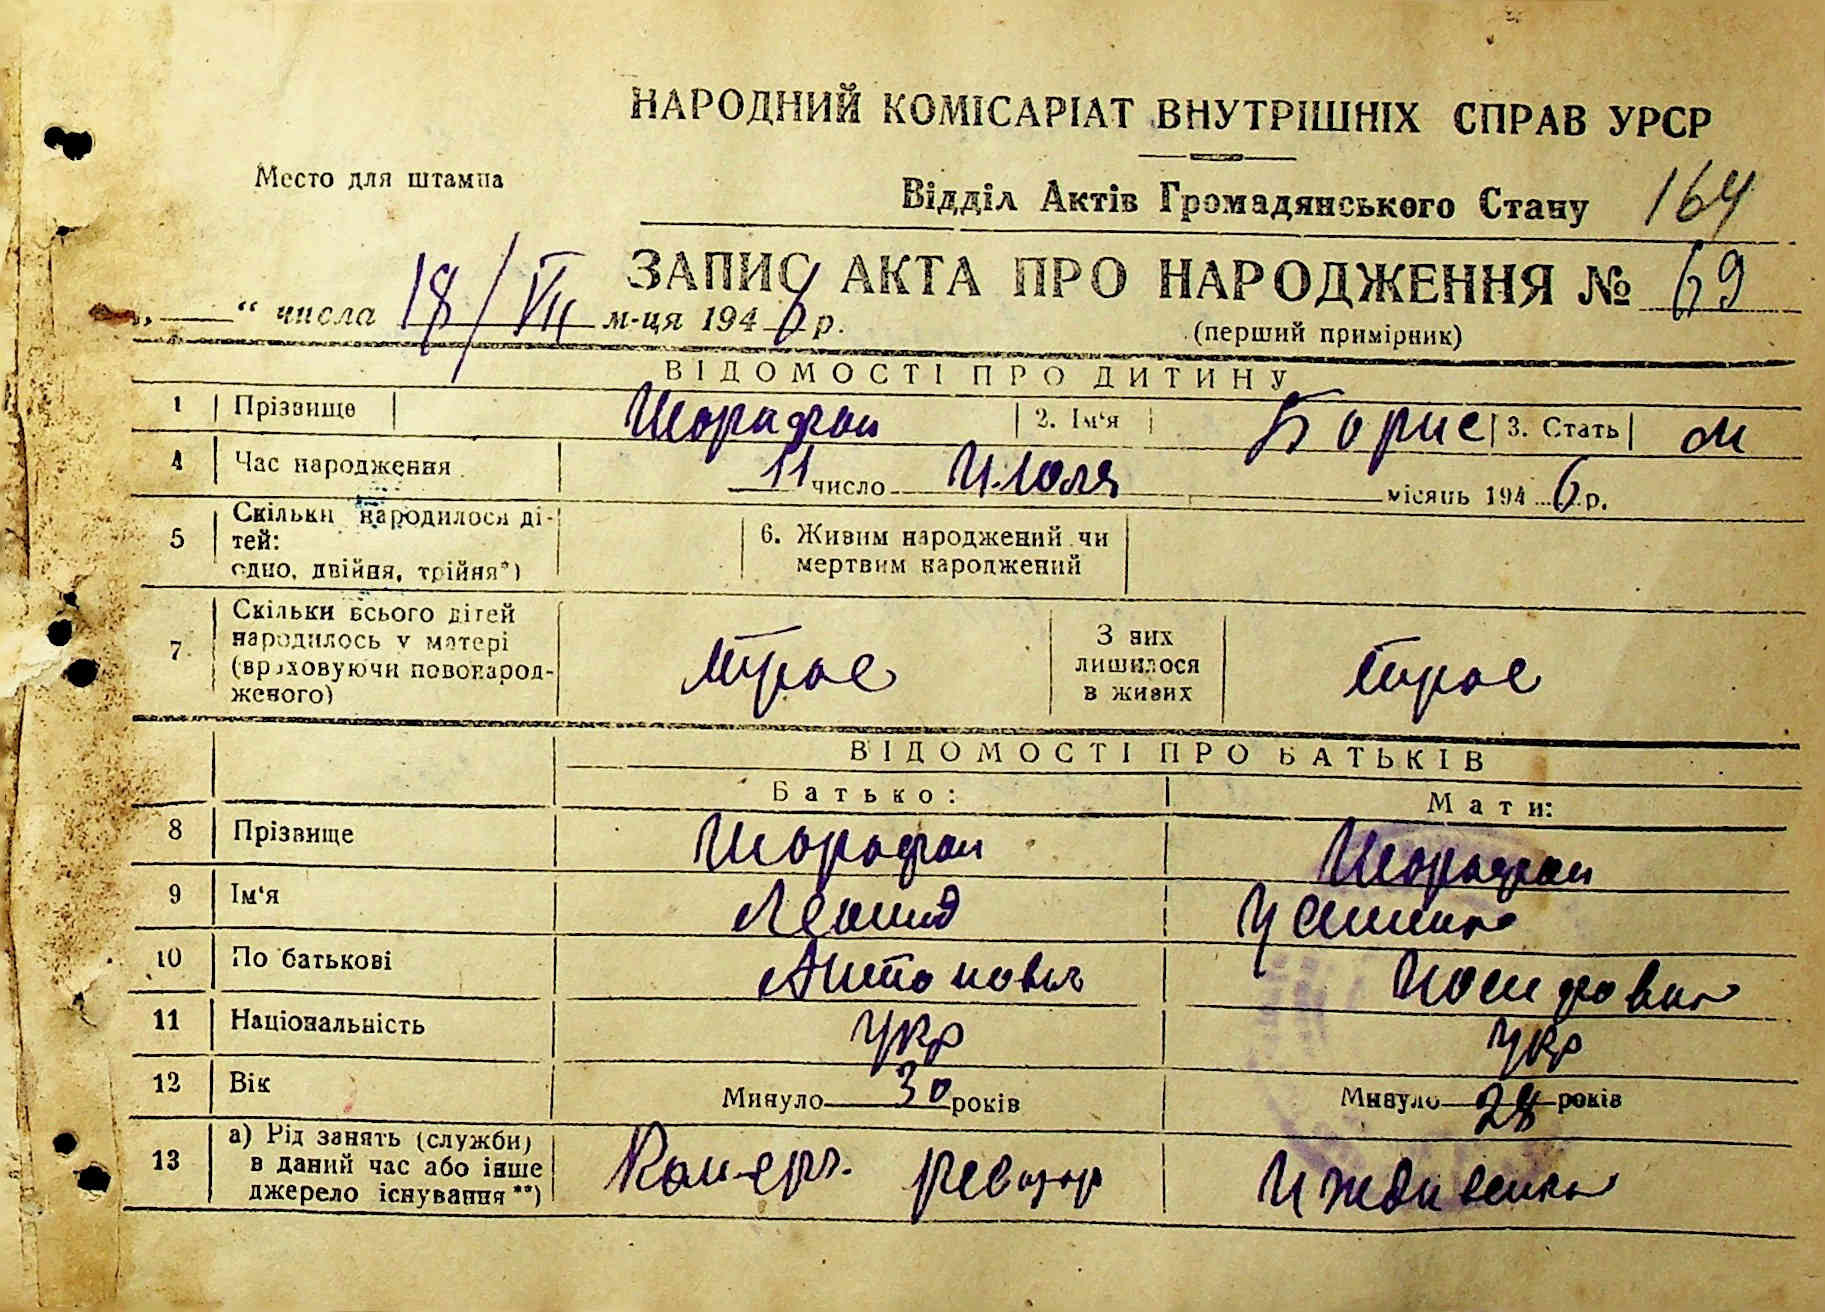 НАРОДНИЙ КОМІСАРІАТ ВНУТРІШНІХ СПРАВ УРСР
Место для штампа
Відділ Актів Громадянського Стану 164
ЗАПИС АКТА ПРО НАРОДЖЕННЯ № 69
„ “ числа 18/VII м-ця 1946 р.
(перший примірник)
ВІДОМОСТІ ПРО ДИТИНУ
1 Прізвище Шарафан 2. Ім‘я Борис 3. Стать м
4 Час народження 11 число Июля місяць 1946 р.
5 Скільки народилося ді-
тей:
одно, двійня, трійня*)
6. Живим народжений чи
мертвим народжений
7 Скільки всього дітей
народилось у матері
(враховуючи новонарод-
женого)
трое
З них
лишилося
в живих
трое
ВІДОМОСТІ ПРО БАТЬКІВ
Батько: Мати:
8 Прізвище Шарафан Шарафан
9 Ім‘я Леонид
10 По батькові Антонович Иосифовна
11 Національність укр укр
12 Вік Минуло 30 років Минуло 28 років
13 а) Рід занять (служби)
в даний час або інше
джерело існування**)
ревизор Иждивенка